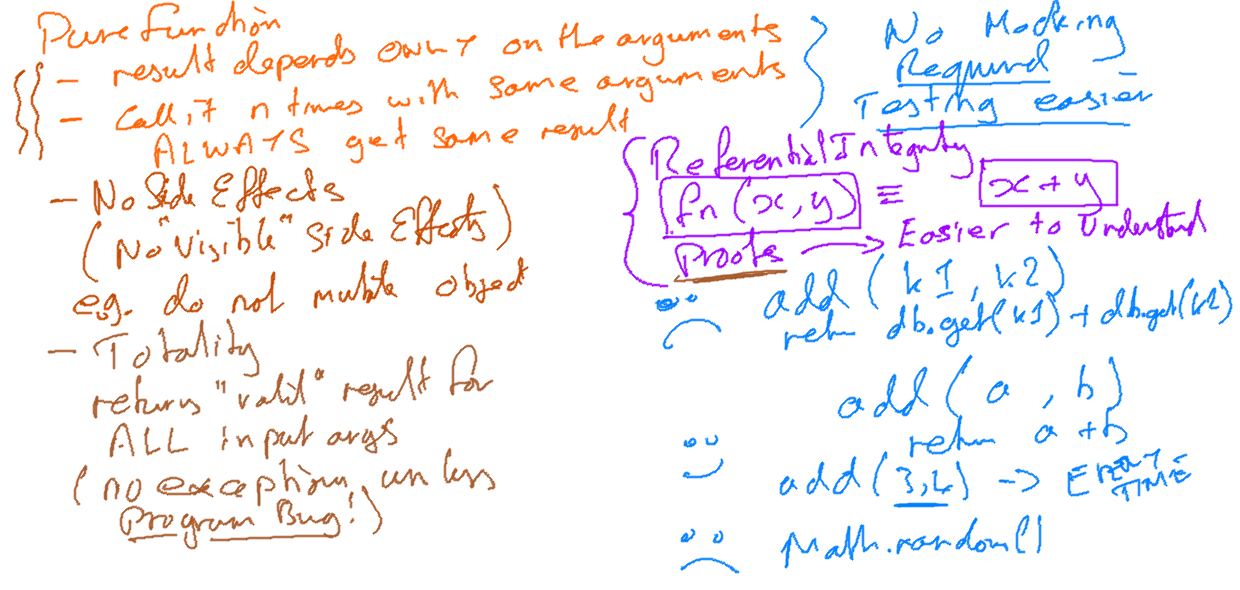 Pure function
- result depends ONLY on the arguments
- Call it n times with same arguments
ALWAYS get same result
- No Side Effects
(No "Visible" Side Effects)
e.g. do not mutate object
- Totality
returns "valid" result for
ALL input args
(no exception, unless
Program Bug!)
No Mocking
Required
Testing easier
Referential Integrity
fn(x,y) ≡ x + y
Proofs → Easier to Understand
add(k1, k2)
return db.get(k1) + db.get(k2)
add(a, b)
return a + b
add(3,4) → EVERY
TIME
Math.random()